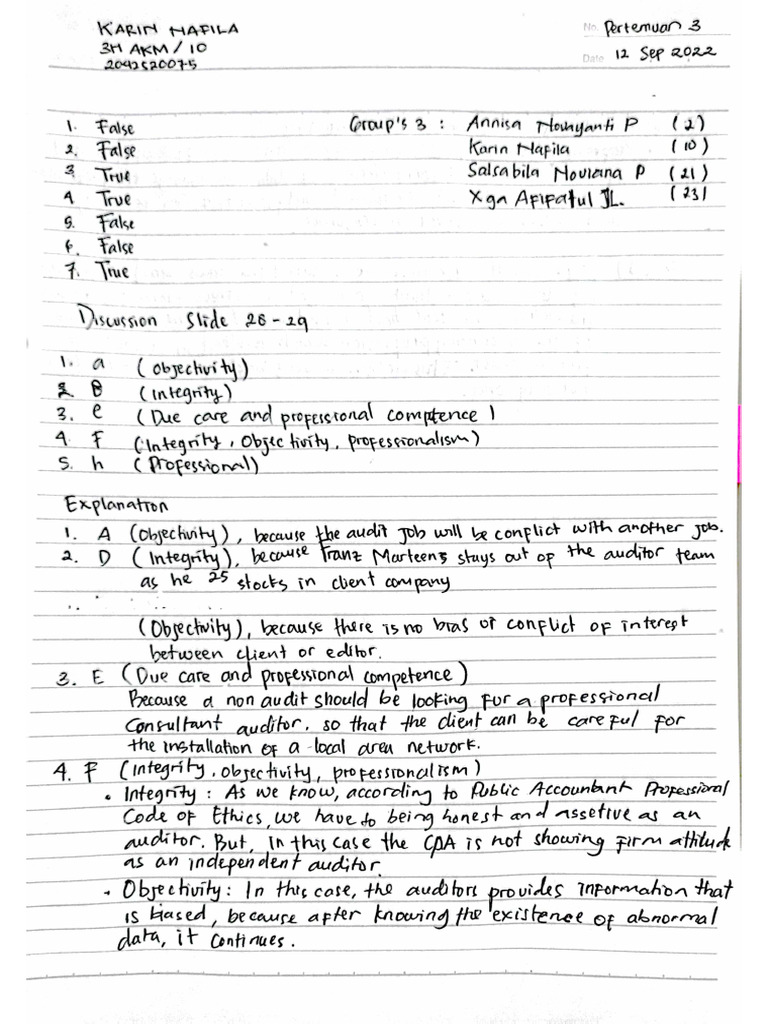 KARIN NAFILA
3H AKM / 10
2042520075
No. Pertemuan 3
Date 12 Sep 2022
1. False
2. False
3. True
4. True
5. False
6. False
7. True
Group's 3 : Annisa Novayanti P (2)
Karin Nafila (10)
Salsabila Noviana P (21)
Xga Afifatul JL. (23)
Discussion Slide 26 - 29
1. a (objectivity)
2. D (integrity)
3. e (Due care and professional comptence)
4. F (Integrity, Objectivity, professionalism)
5. h (Professional)
Explanation
1. A (Objectivity), because the audit job will be conflict with another job.
2. D (Integrity), because Franz Marteens stays out of the auditor team
as he 25 stocks in client company
(Objectivity), because there is no bias or conflict of interest
between client or editor.
3. E (Due care and professional competence)
Because a non audit should be looking for a professional
Consultant auditor. so that the client can be careful for
the installation of a local area network.
4. F (Integrity, objectivity, professionalism)
• Integrity : As we know, according to Public Accountant Professional
Code of Ethics, we have to being honest and assetive as an
auditor. But, in this case the CPA is not showing firm attitude
as an independent auditor.
• Objectivity : In this case, the auditors provides information that
is biased, because after knowing the existence of abnormal
data, it continues.